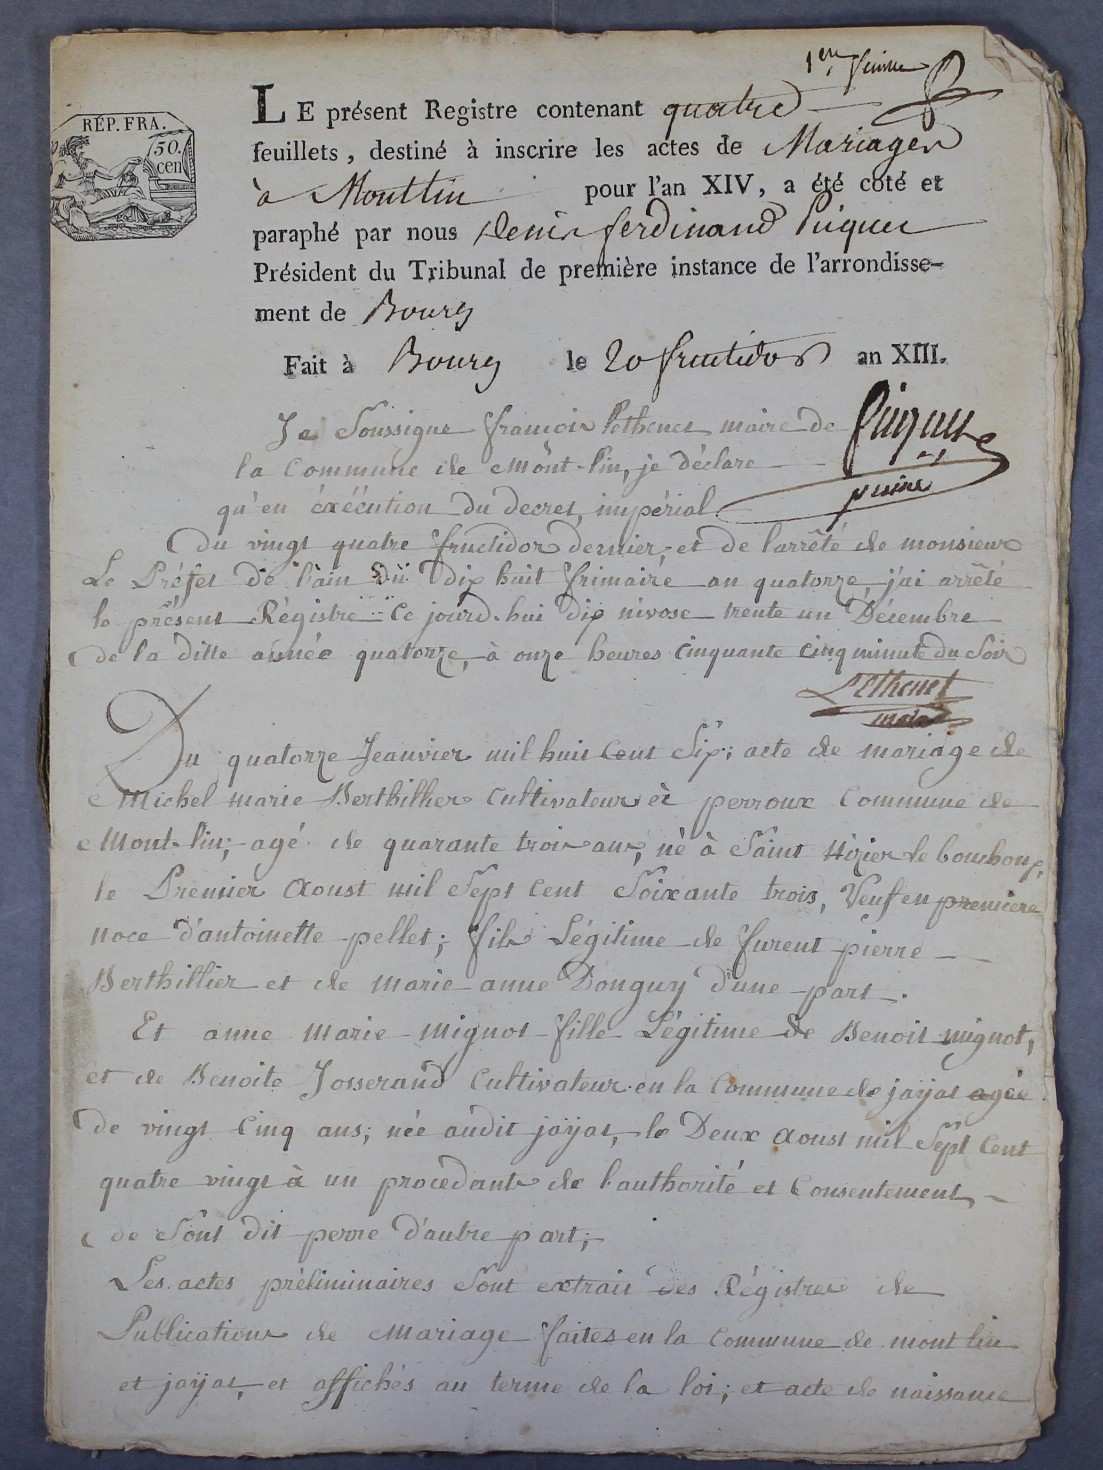 1ere feuille
RÉP. FRA.
50.
cen
LE présent Registre contenant quatre
feuillets, destiné à inscrire les actes de Mariages
à Montlin pour l'an XIV, a été coté et
paraphé par nous denis ferdinand Piquet
Président du Tribunal de première instance de l'arrondisse-
ment de Bourg
Fait à Bourg le 20 fructidor an XIII.
Je Soussigné françois Pethenet maire de
la Commune de Mont-lin, je déclare
qu'en éxécution du decret impérial
Du vingt quatre fructidor dernier, et de l'arrêté de monsieur
Le Préfet de l'ain Du dix huit frimaire an quatorze j'ai arrêté
le présent Régistre ce jourd-hui dix nivose trente un Décembre
de la ditte année quatorze, à onze heures cinquante cinq minute du Soir
Pethenet
maire
Du quatorze Jeanvier mil huit Cent Six; acte de mariage de
Michel marie Berthillier Cultivateur à perroux Commune de
Mont-lin; agé de quarante trois ans, né à Saint Nizier le bouchoux,
le Premier Aoust mil Sept Cent Soixante trois, Veuf en première
noce d'antoinette pellet; fils Légitime de furent pierre
Berthillier et de marie anne Donguy d'une part.
Et anne marie mignot fille Légitime de Benoit mignot,
et de Benoite Josserand Cultivateur en la Commune de jayat agée
De vingt Cinq ans; née audit jayat, le Deux Aoust mil Sept Cent
quatre vingt à un procedante de l'authorité et Consentement
de Sont dit perre d'autre part;
Les actes préliminaires Sont extrait des Régistres de
Publications de Mariage faites en la Commune de mont lin
et jayat, et affichés au terme de la loi; et acte de naissance